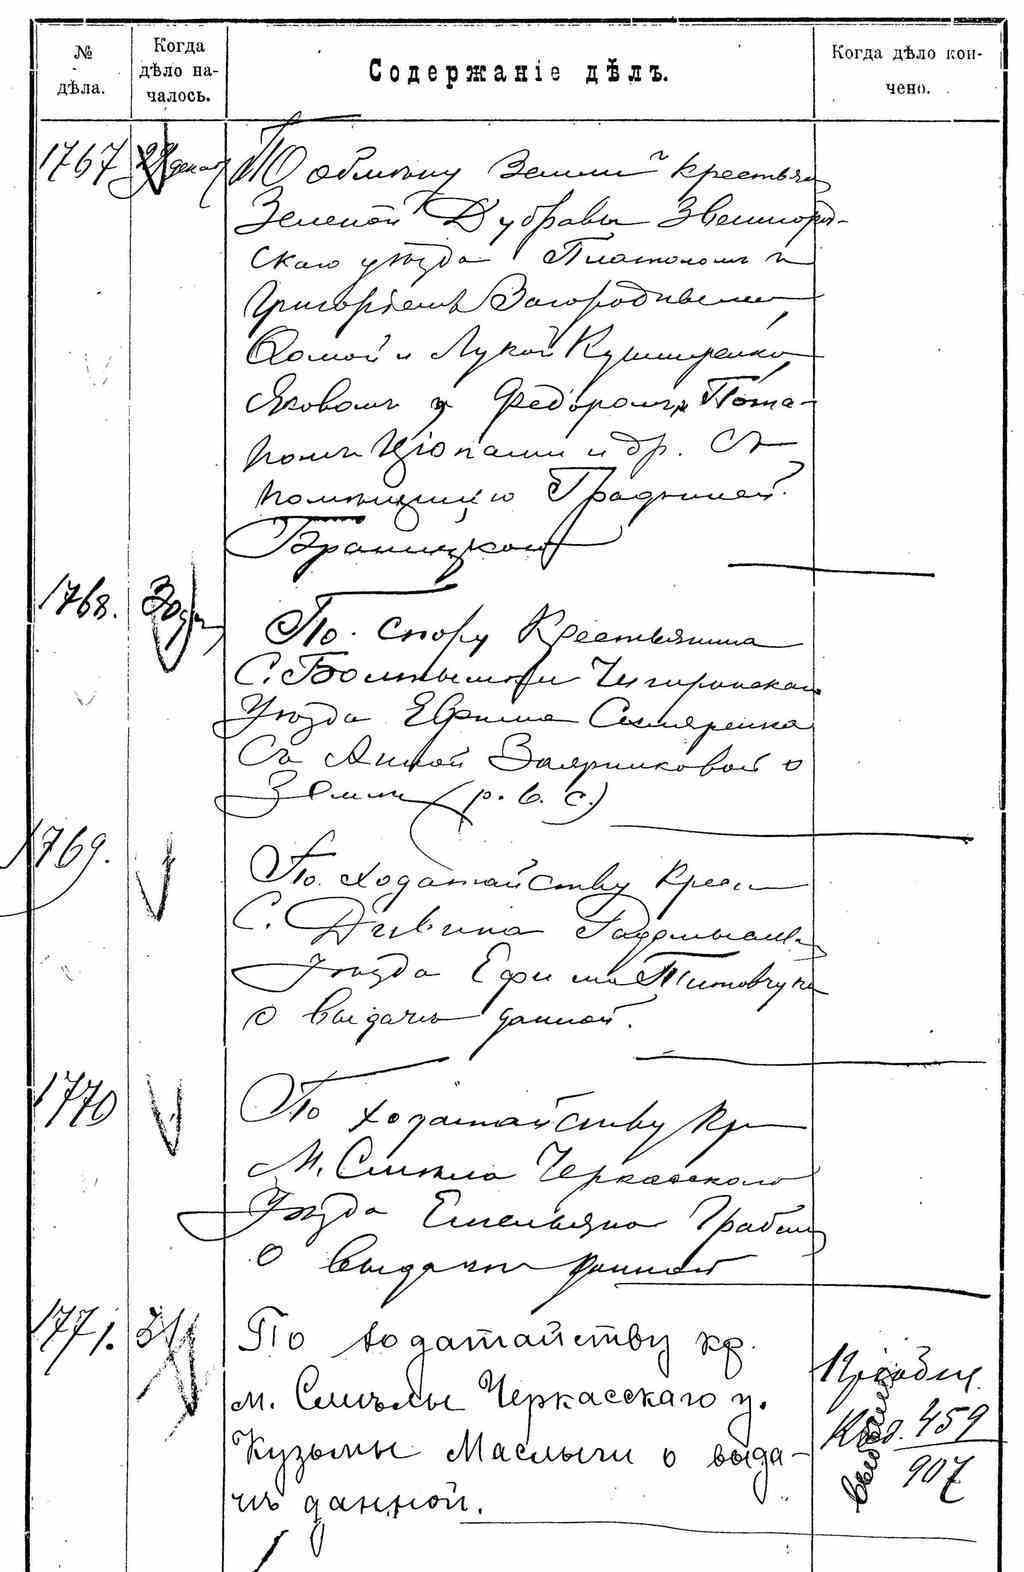 №
дѣла.
Когда
дѣло на-
чалось.
Содержаніе дѣлъ.
Когда дѣло кон-
чено.
1767
По обмѣну земли крестьян
Зеленой Дубравы Звенигород-
скаго уѣзда Платономъ и
Григоріемъ Загородными,
Хомой и Лукой Кушниренко,
Яковомъ и Федоромъ, Пота-
помъ и др. Съ
помѣщицею Графиней
Браницкой
1768. 30
По спору Крестьянина
С. Болтышки Чигиринскаго
Уѣзда Ефима Скляренка
Съ Анной Заярниковой о
Земли (р. в. с.)
1769.
По ходатайству Крест
С. Дивина Радомысл
Уѣзда Ефима Титовчука
о выдачѣ данной.
1770
По ходатайству Кр
М. Смѣла Черкасскаго
Уѣзда Емельяна
о выдачи данной
1771. 31
По ходатайству кр.
м. Смѣлы Черкасскаго у.
Кузьмы Маслычи о выда-
чѣ данной.
459
907